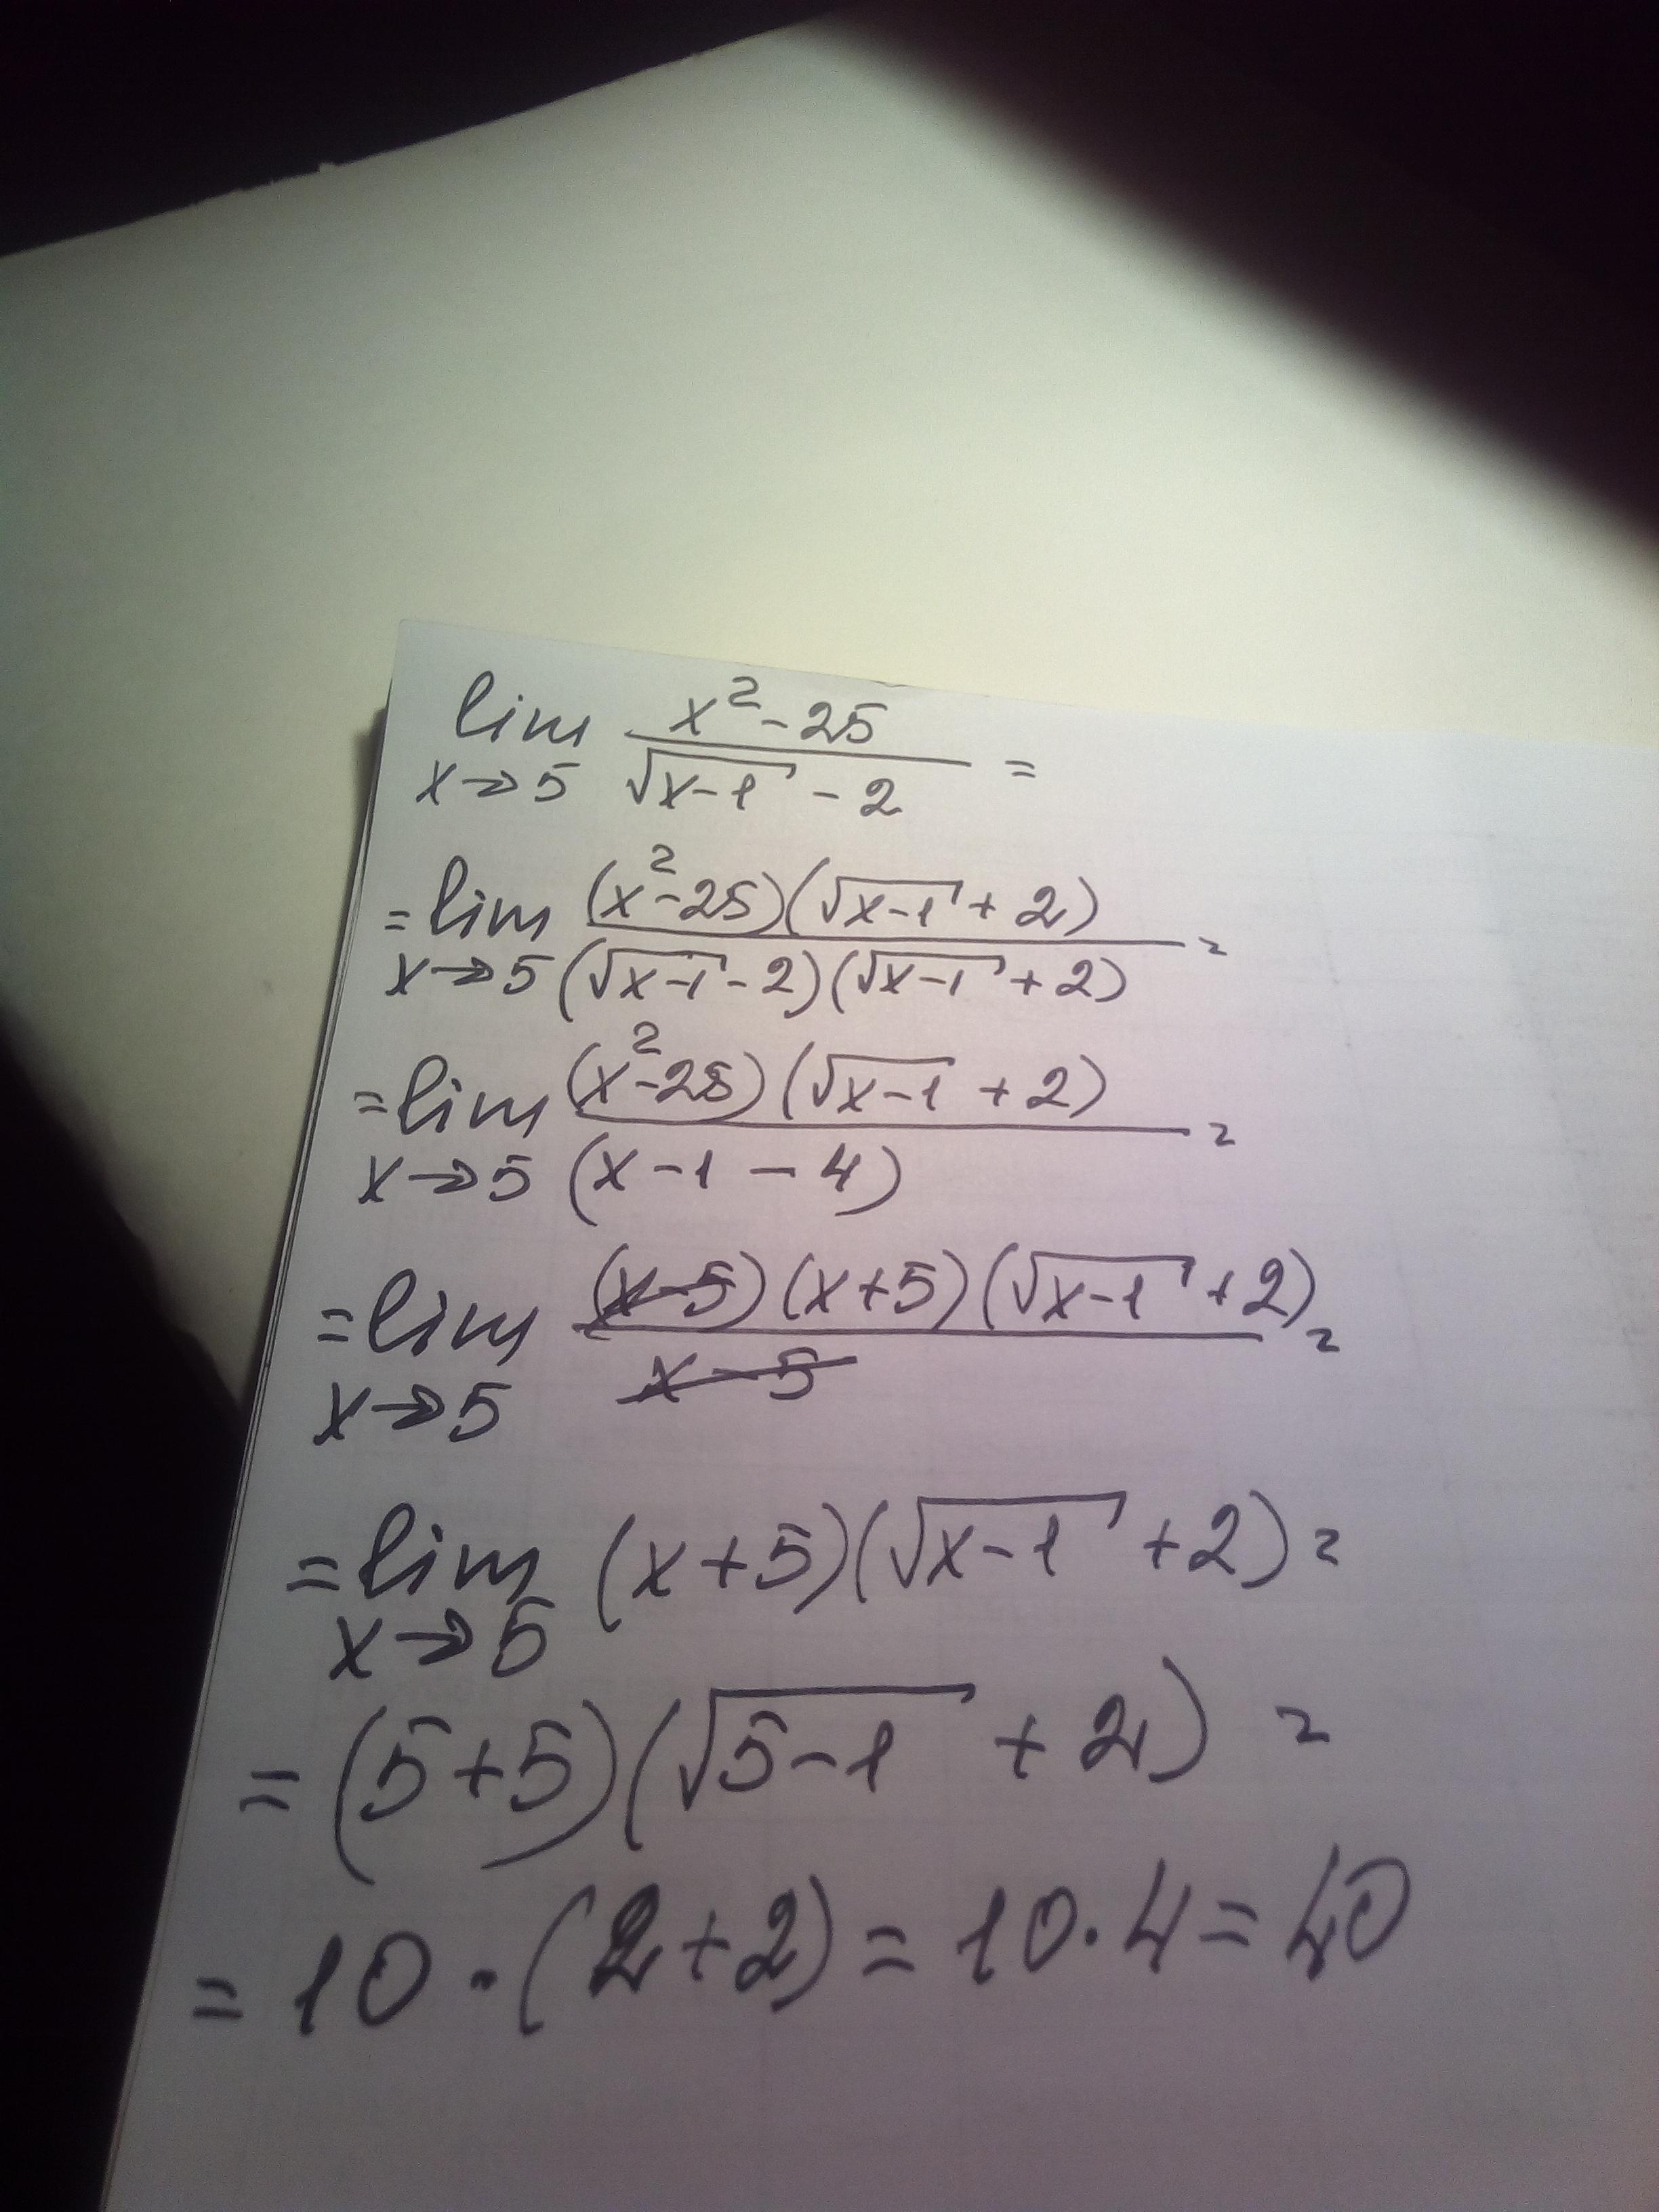 lim x→5 (x² - 25)/(√(x-1) - 2) =
= lim x→5 ((x² - 25)(√(x-1) + 2))/((√(x-1) - 2)(√(x-1) + 2)) =
= lim x→5 ((x² - 25)(√(x-1) + 2))/(x - 1 - 4) =
= lim x→5 ((x - 5)(x + 5)(√(x-1) + 2))/(x - 5) =
= lim x→5 (x + 5)(√(x-1) + 2) =
= (5 + 5)(√(5-1) + 2) =
= 10 · (2 + 2) = 10 · 4 = 40